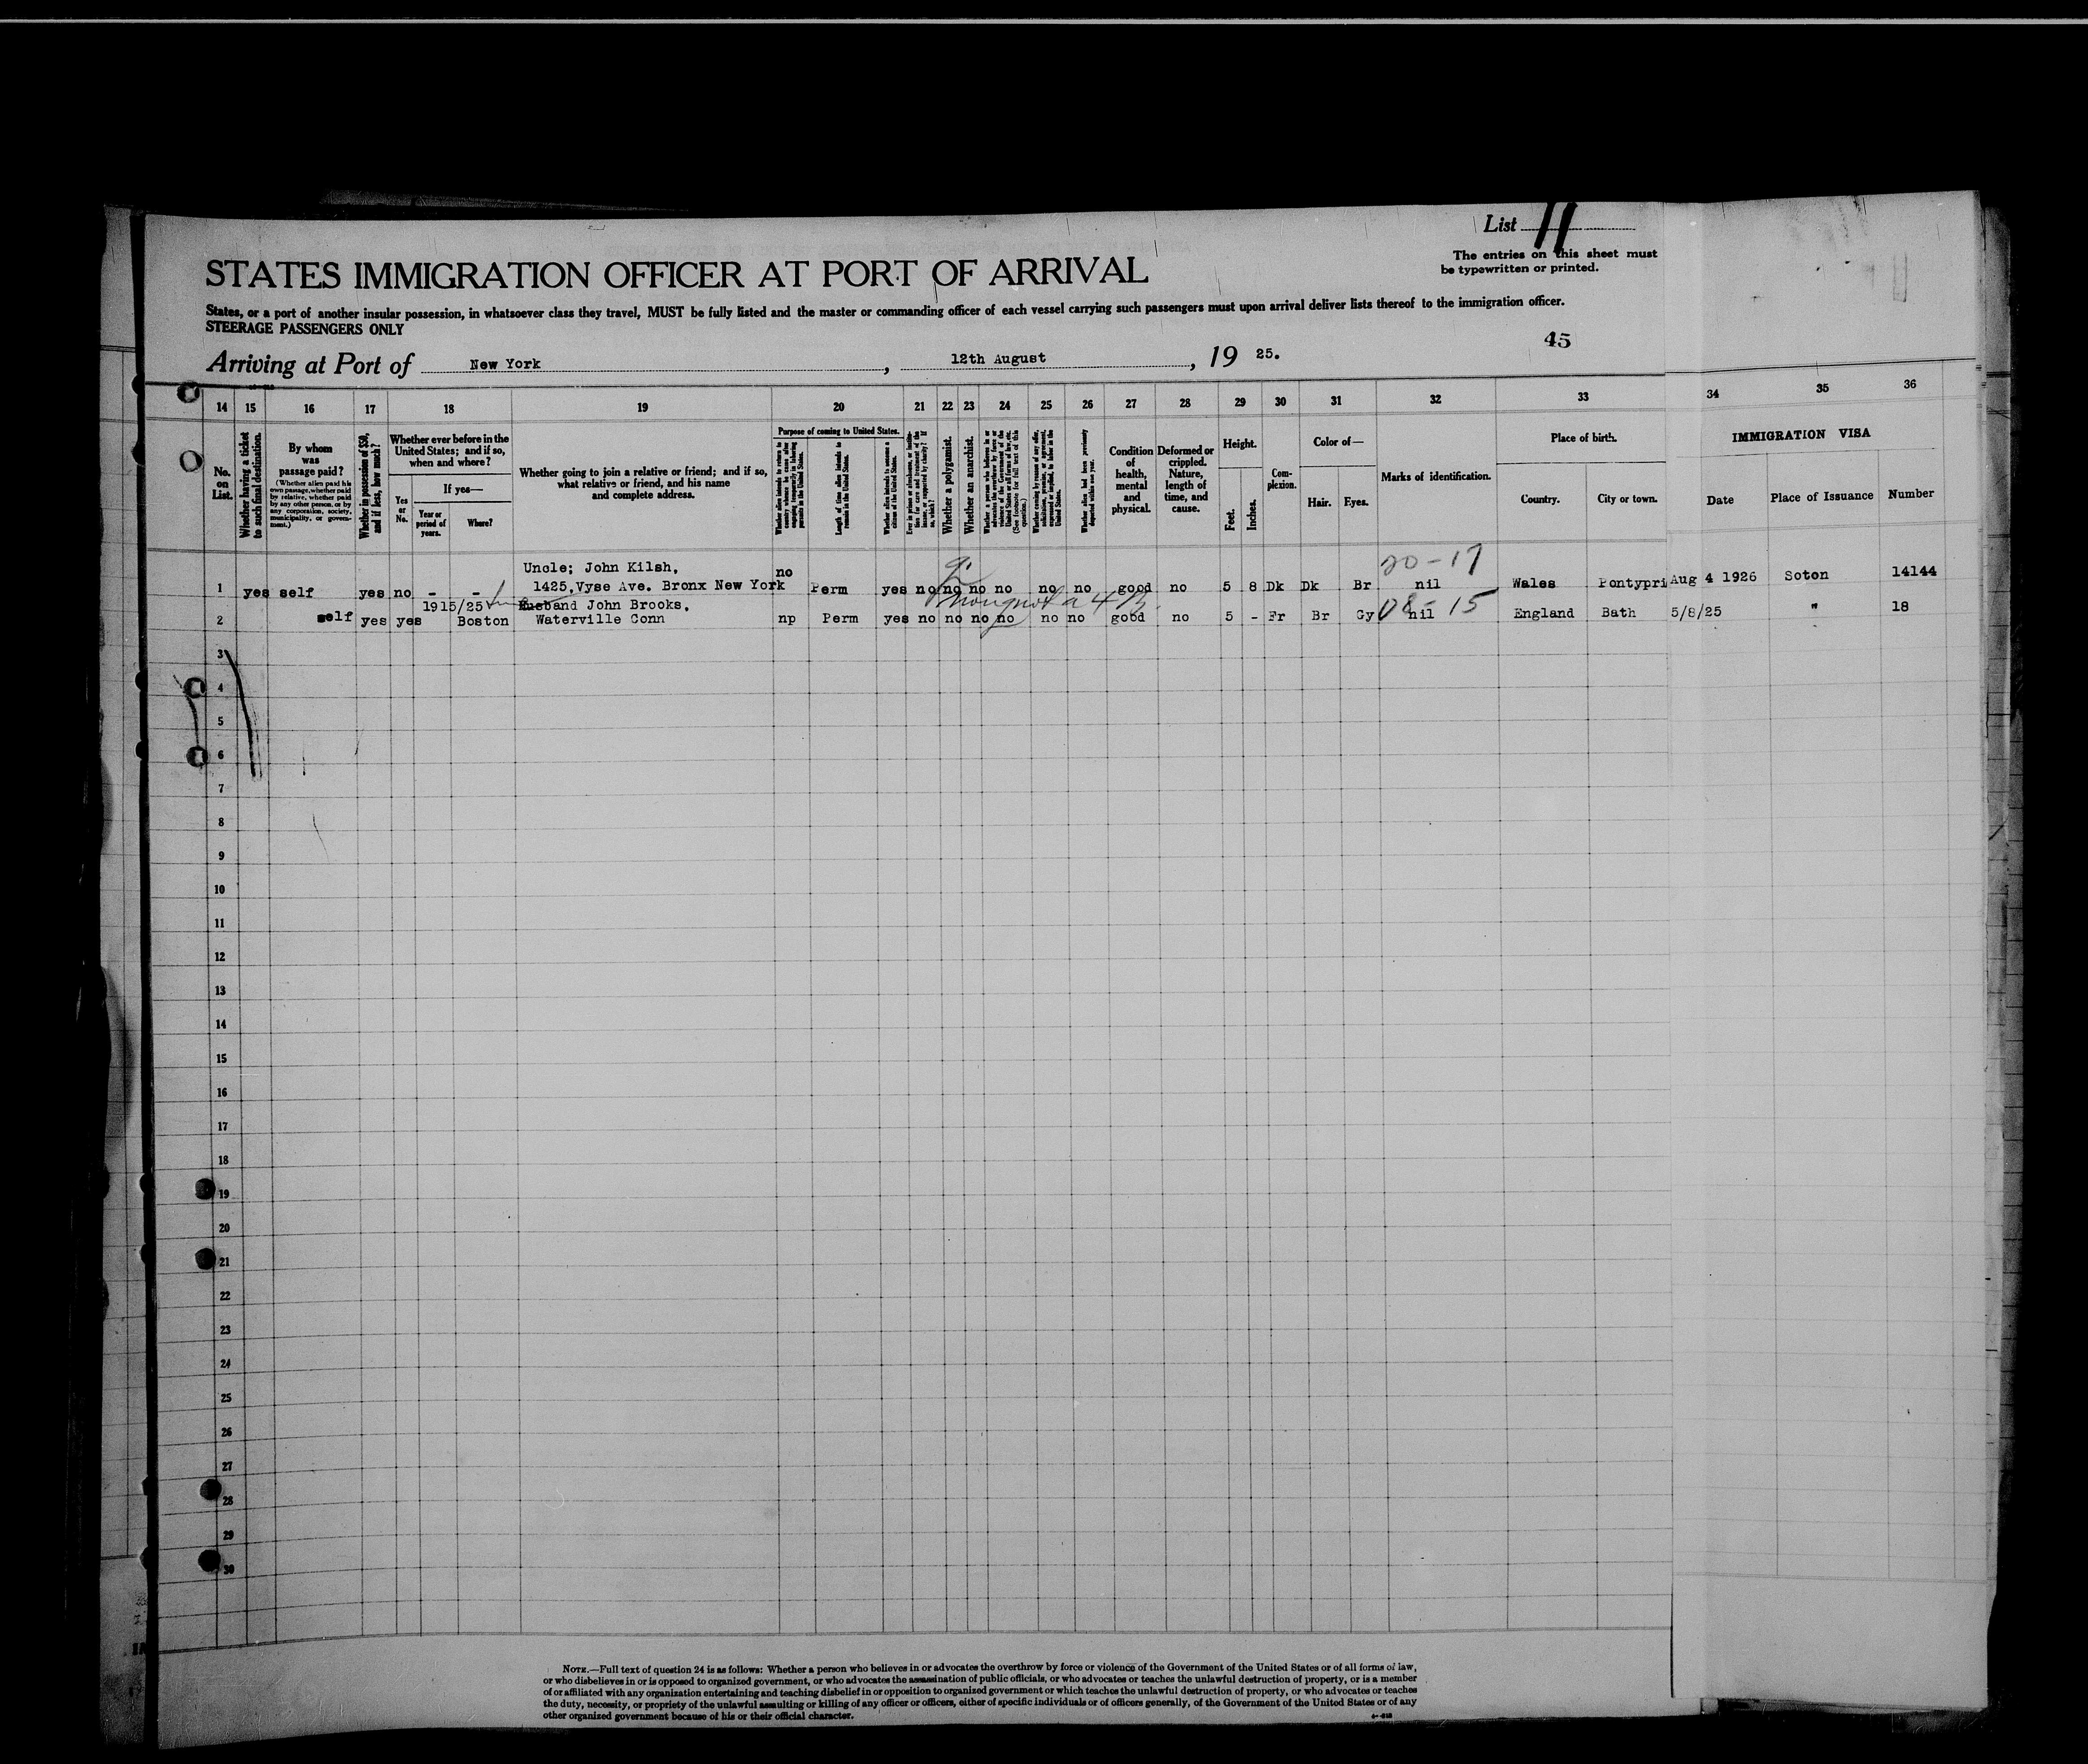 List 11
The entries on this sheet must
be typewritten or printed.
STATES IMMIGRATION OFFICER AT PORT OF ARRIVAL
States, or a port of another insular possession, in whatsoever class they travel, MUST be fully listed and the master or commanding officer of each vessel carrying such passengers must upon arrival deliver lists thereof to the immigration officer.
STEERAGE PASSENGERS ONLY
45
Arriving at Port of New York, 12th August, 19 25.
14 15 16 17 18 19 20 21 22 23 24 25 26 27 28 29 30 31 32 33 34 35 36
No. on List.
Whether having a ticket to such final destination.
By whom was passage paid?
(Whether alien paid his own passage, whether paid by relative, whether paid by any other person, or by any corporation, society, municipality, or government.)
Whether in possession of $50, and if less, how much?
Whether ever before in the United States; and if so, when and where?
Yes or No.
If yes—
Year or period of years.
Where?
Whether going to join a relative or friend; and if so, what relative or friend, and his name and complete address.
Purpose of coming to United States.
Length of time alien intends to remain in the United States.
Whether alien intends to become a citizen of the United States.
Whether a polygamist.
Whether an anarchist.
Condition of health, mental and physical.
Deformed or crippled. Nature, length of time, and cause.
Height.
Feet.
Inches.
Complexion.
Color of—
Hair.
Eyes.
Marks of identification.
Place of birth.
Country.
City or town.
IMMIGRATION VISA
Date
Place of Issuance
Number
20-17
Uncle; John Kilsh,
1 yes self yes no - - 1425, Vyse Ave. Bronx New York no Perm yes no no no no no no good no 5 8 Dk Dk Br nil Wales Pontypri Aug 4 1926 Soton 14144
1915/25 Husband John Brooks,
08-15
2 self yes yes Boston Waterville Conn np Perm yes no no no no no no good no 5 - Fr Br Gy nil England Bath 5/8/25 " 18
3
4
5
6
7
8
9
10
11
12
13
14
15
16
17
18
19
20
21
22
23
24
25
26
27
28
29
30
NOTE.—Full text of question 24 is as follows: Whether a person who believes in or advocates the overthrow by force or violence of the Government of the United States or of all forms of law,
or who disbelieves in or is opposed to organized government, or who advocates the assassination of public officials, or who advocates or teaches the unlawful destruction of property, or is a member
of or affiliated with any organization entertaining and teaching disbelief in or opposition to organized government or which teaches the unlawful destruction of property, or who advocates or teaches
the duty, necessity, or propriety of the unlawful assaulting or killing of any officer or officers, either of specific individuals or of officers generally, of the Government of the United States or of any
other organized government because of his or their official character.